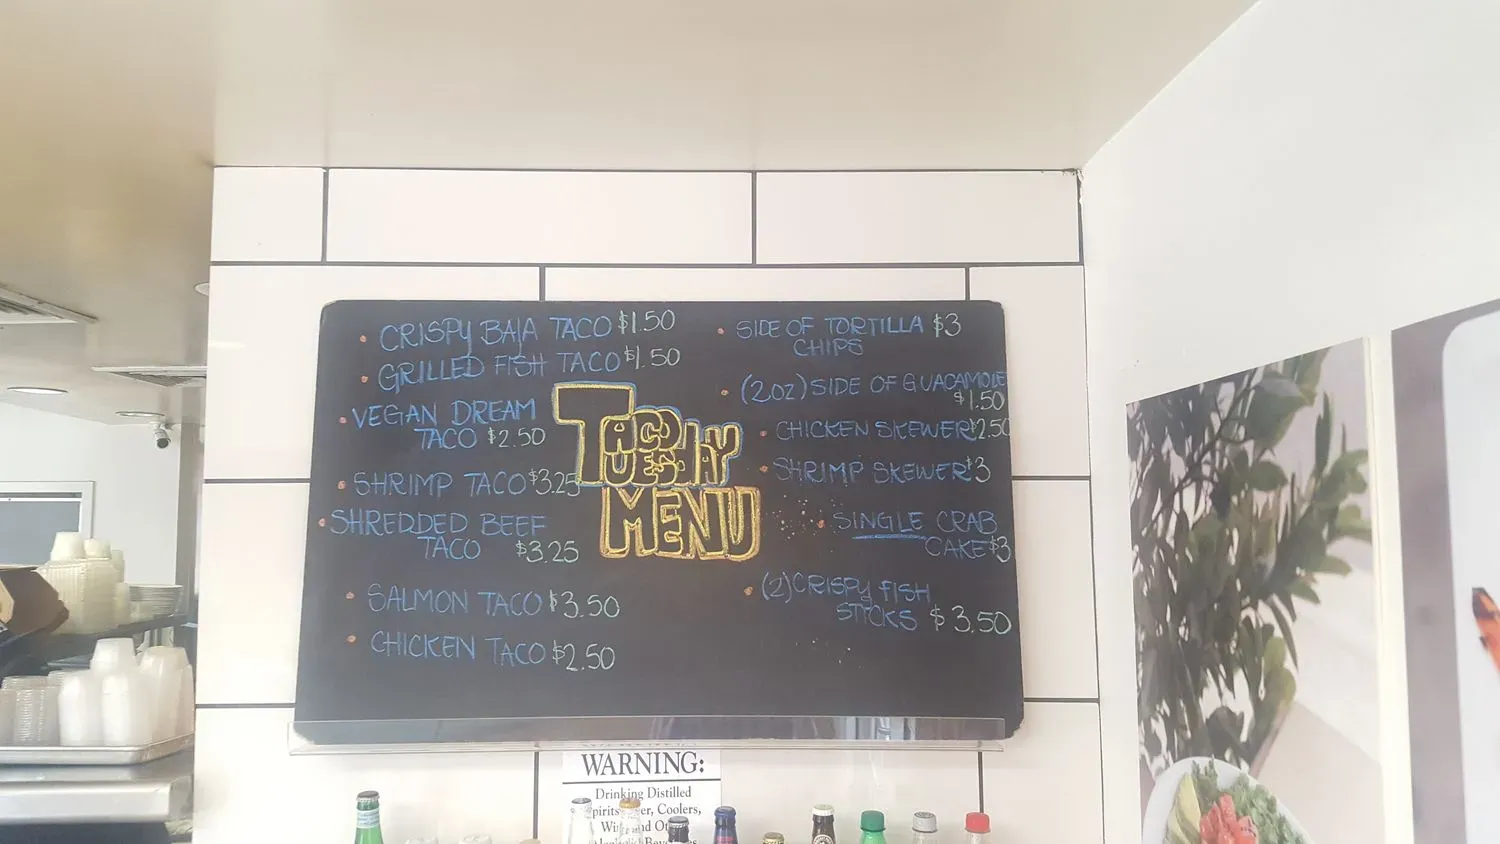 CRISPY BAJA TACO $1.50
GRILLED FISH TACO $1.50
VEGAN DREAM
TACO $2.50
SHRIMP TACO $3.25
SHREDDED BEEF
TACO $3.25
SALMON TACO $3.50
CHICKEN TACO $2.50
TACO
TUESDAY
MENU
SIDE OF TORTILLA $3
CHIPS
(2oz) SIDE OF GUACAMOLE
$1.50
CHICKEN SKEWER $2.50
SHRIMP SKEWER $3
SINGLE CRAB
CAKE $3
(2) CRISPY FISH
STICKS $3.50
WARNING:
Drinking Distilled
Coolers,